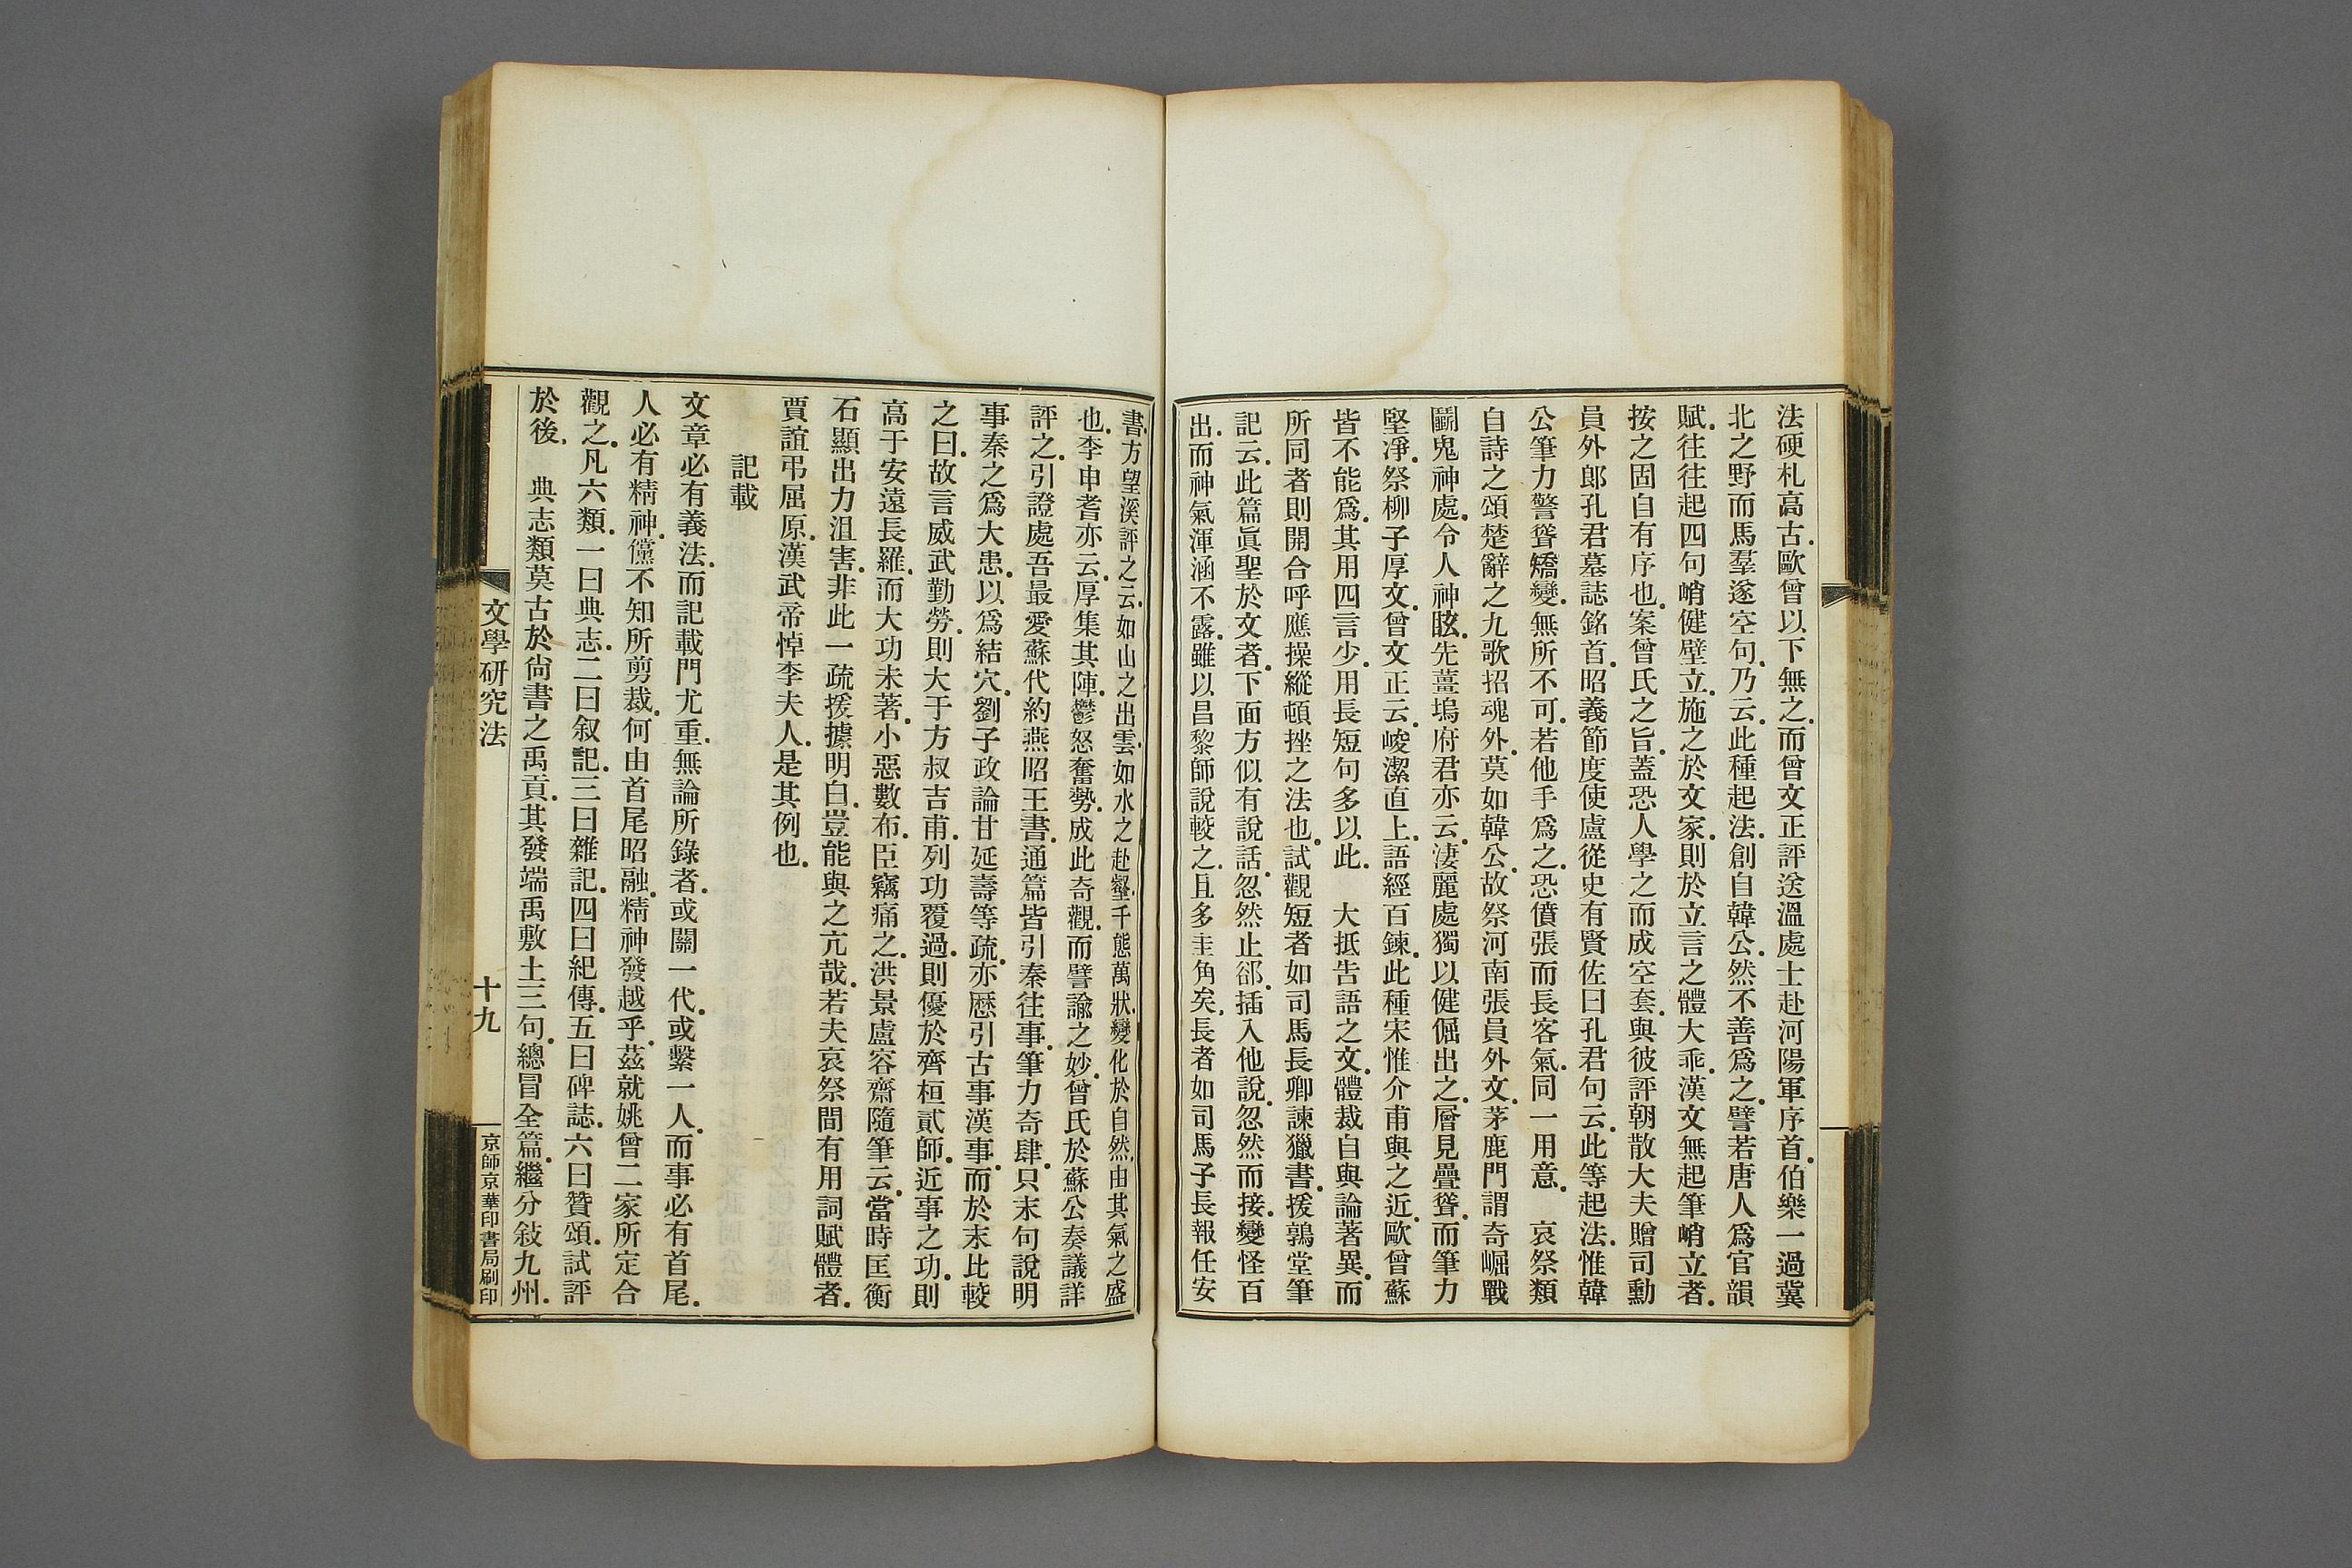 法硬札高古.歐曾以下無之.而曾文正評送溫處士赴河陽軍序首.伯樂一過冀
北之野而馬羣遂空句.乃云.此種起法.創自韓公.然不善爲之.譬若唐人爲官韻
賦.往往起四句峭健壁立.施之於文家.則於立言之體大乖.漢文無起筆峭立者.
按之固自有序也.案曾氏之旨.蓋恐人學之而成空套.與彼評朝散大夫贈司勳
員外郎孔君墓誌銘首.昭義節度使盧從史有賢佐曰孔君句云.此等起法.惟韓
公筆力警聳矯變.無所不可.若他手爲之.恐僨張而長客氣.同一用意.　哀祭類
自詩之頌楚辭之九歌招魂外.莫如韓公.故祭河南張員外文.茅鹿門謂奇崛戰
鬭鬼神處.令人神眩.先薑塢府君亦云.淒麗處獨以健倔出之.層見疊聳.而筆力
堅凈.祭柳子厚文.曾文正云.峻潔直上.語經百鍊.此種宋惟介甫與之近.歐曾蘇
皆不能爲.其用四言少.用長短句多以此.　大抵告語之文.體裁自與論著異.而
所同者則開合呼應操縱頓挫之法也.試觀短者如司馬長卿諫獵書.援鶉堂筆
記云.此篇眞聖於文者.下面方似有說話.忽然止郤.插入他說.忽然而接.變怪百
出.而神氣渾涵不露.雖以昌黎師說較之.且多圭角矣.長者如司馬子長報任安
書.方望溪評之云.如山之出雲.如水之赴壑.千態萬狀.變化於自然.由其氣之盛
也.李申耆亦云.厚集其陣.鬱怒奮勢.成此奇觀.而譬諭之妙.曾氏於蘇公奏議詳
評之.引證處吾最愛蘇代約燕昭王書.通篇皆引秦往事.筆力奇肆.只末句說明
事秦之爲大患.以爲結穴.劉子政論甘延壽等疏.亦歷引古事漢事.而於末比較
之曰.故言威武勤勞.則大于方叔吉甫.列功覆過.則優於齊桓貳師.近事之功.則
高于安遠長羅.而大功未著.小惡數布.臣竊痛之.洪景盧容齋隨筆云.當時匡衡
石顯出力沮害.非此一疏援據明白.豈能與之亢哉.若夫哀祭間有用詞賦體者.
賈誼弔屈原.漢武帝悼李夫人.是其例也.
記載
文章必有義法.而記載門尤重.無論所錄者.或關一代.或繫一人.而事必有首尾.
人必有精神.儻不知所剪裁.何由首尾昭融.精神發越乎.茲就姚曾二家所定合
觀之.凡六類.一曰典志.二曰叙記.三曰雜記.四曰紀傳.五曰碑誌.六曰贊頌.試評
於後.　典志類莫古於尙書之禹貢.其發端禹敷土三句.總冒全篇.繼分敍九州.
文學研究法
十九
京師京華印書局刷印